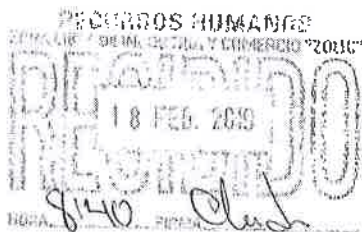 RECURSOS HUMANOS
INDUSTRIA Y COMERCIO "ZOLIC"
RECIBIDO
18 FEB. 2019
HORA 8:40 FIRMA